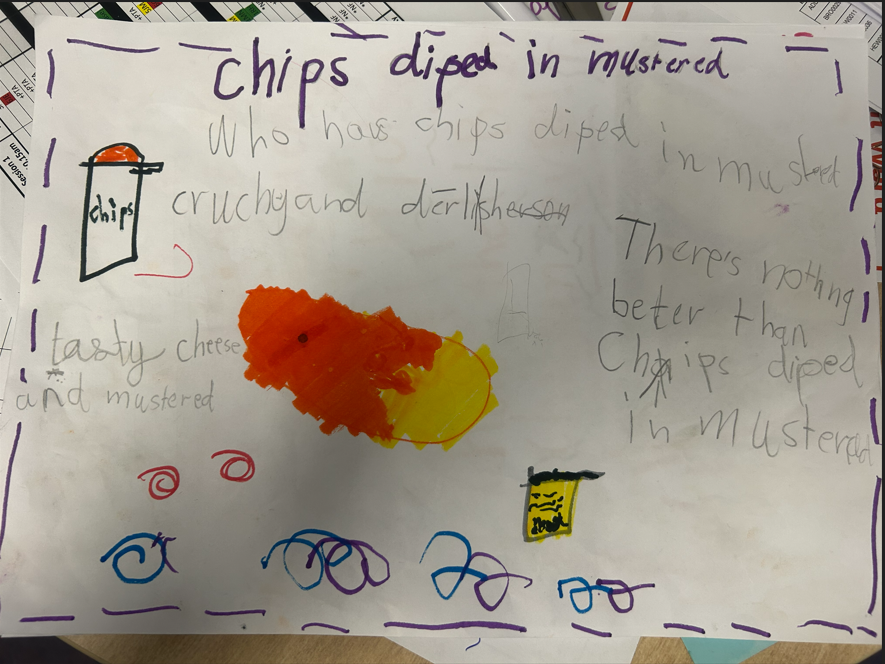 chips diped in mustered
Who has chips diped in mustered
chips
cruchy and
There's nothng
better than
Chips diped
in mustered
tasty cheese
and mustered